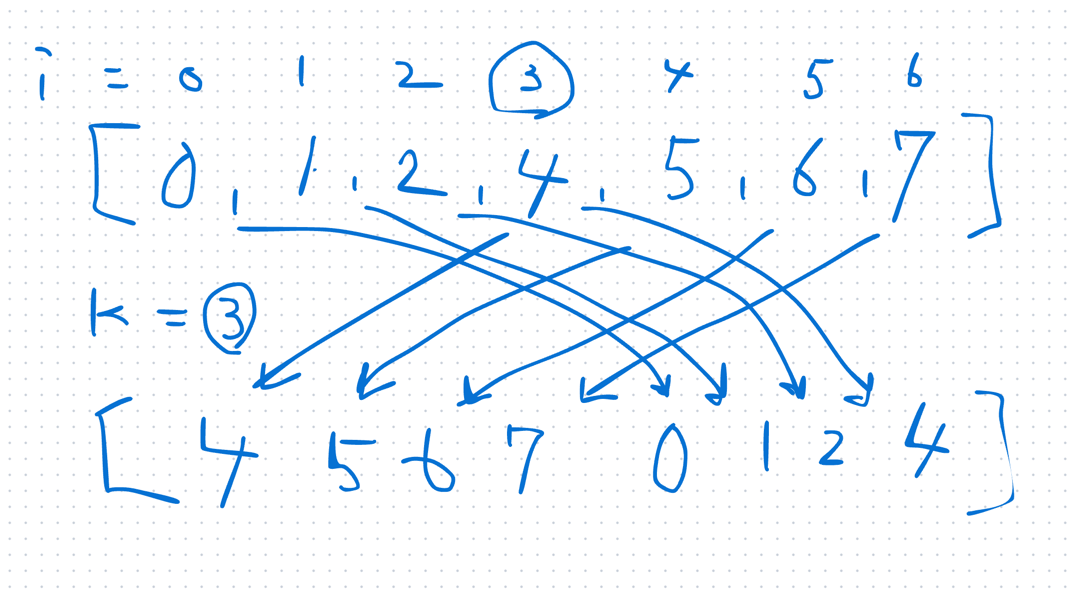 i = 0 1 2 3 4 5 6
[ 0 , 1 , 2 , 4 , 5 , 6 , 7 ]
k = 3
[ 4 5 6 7 0 1 2 4 ]